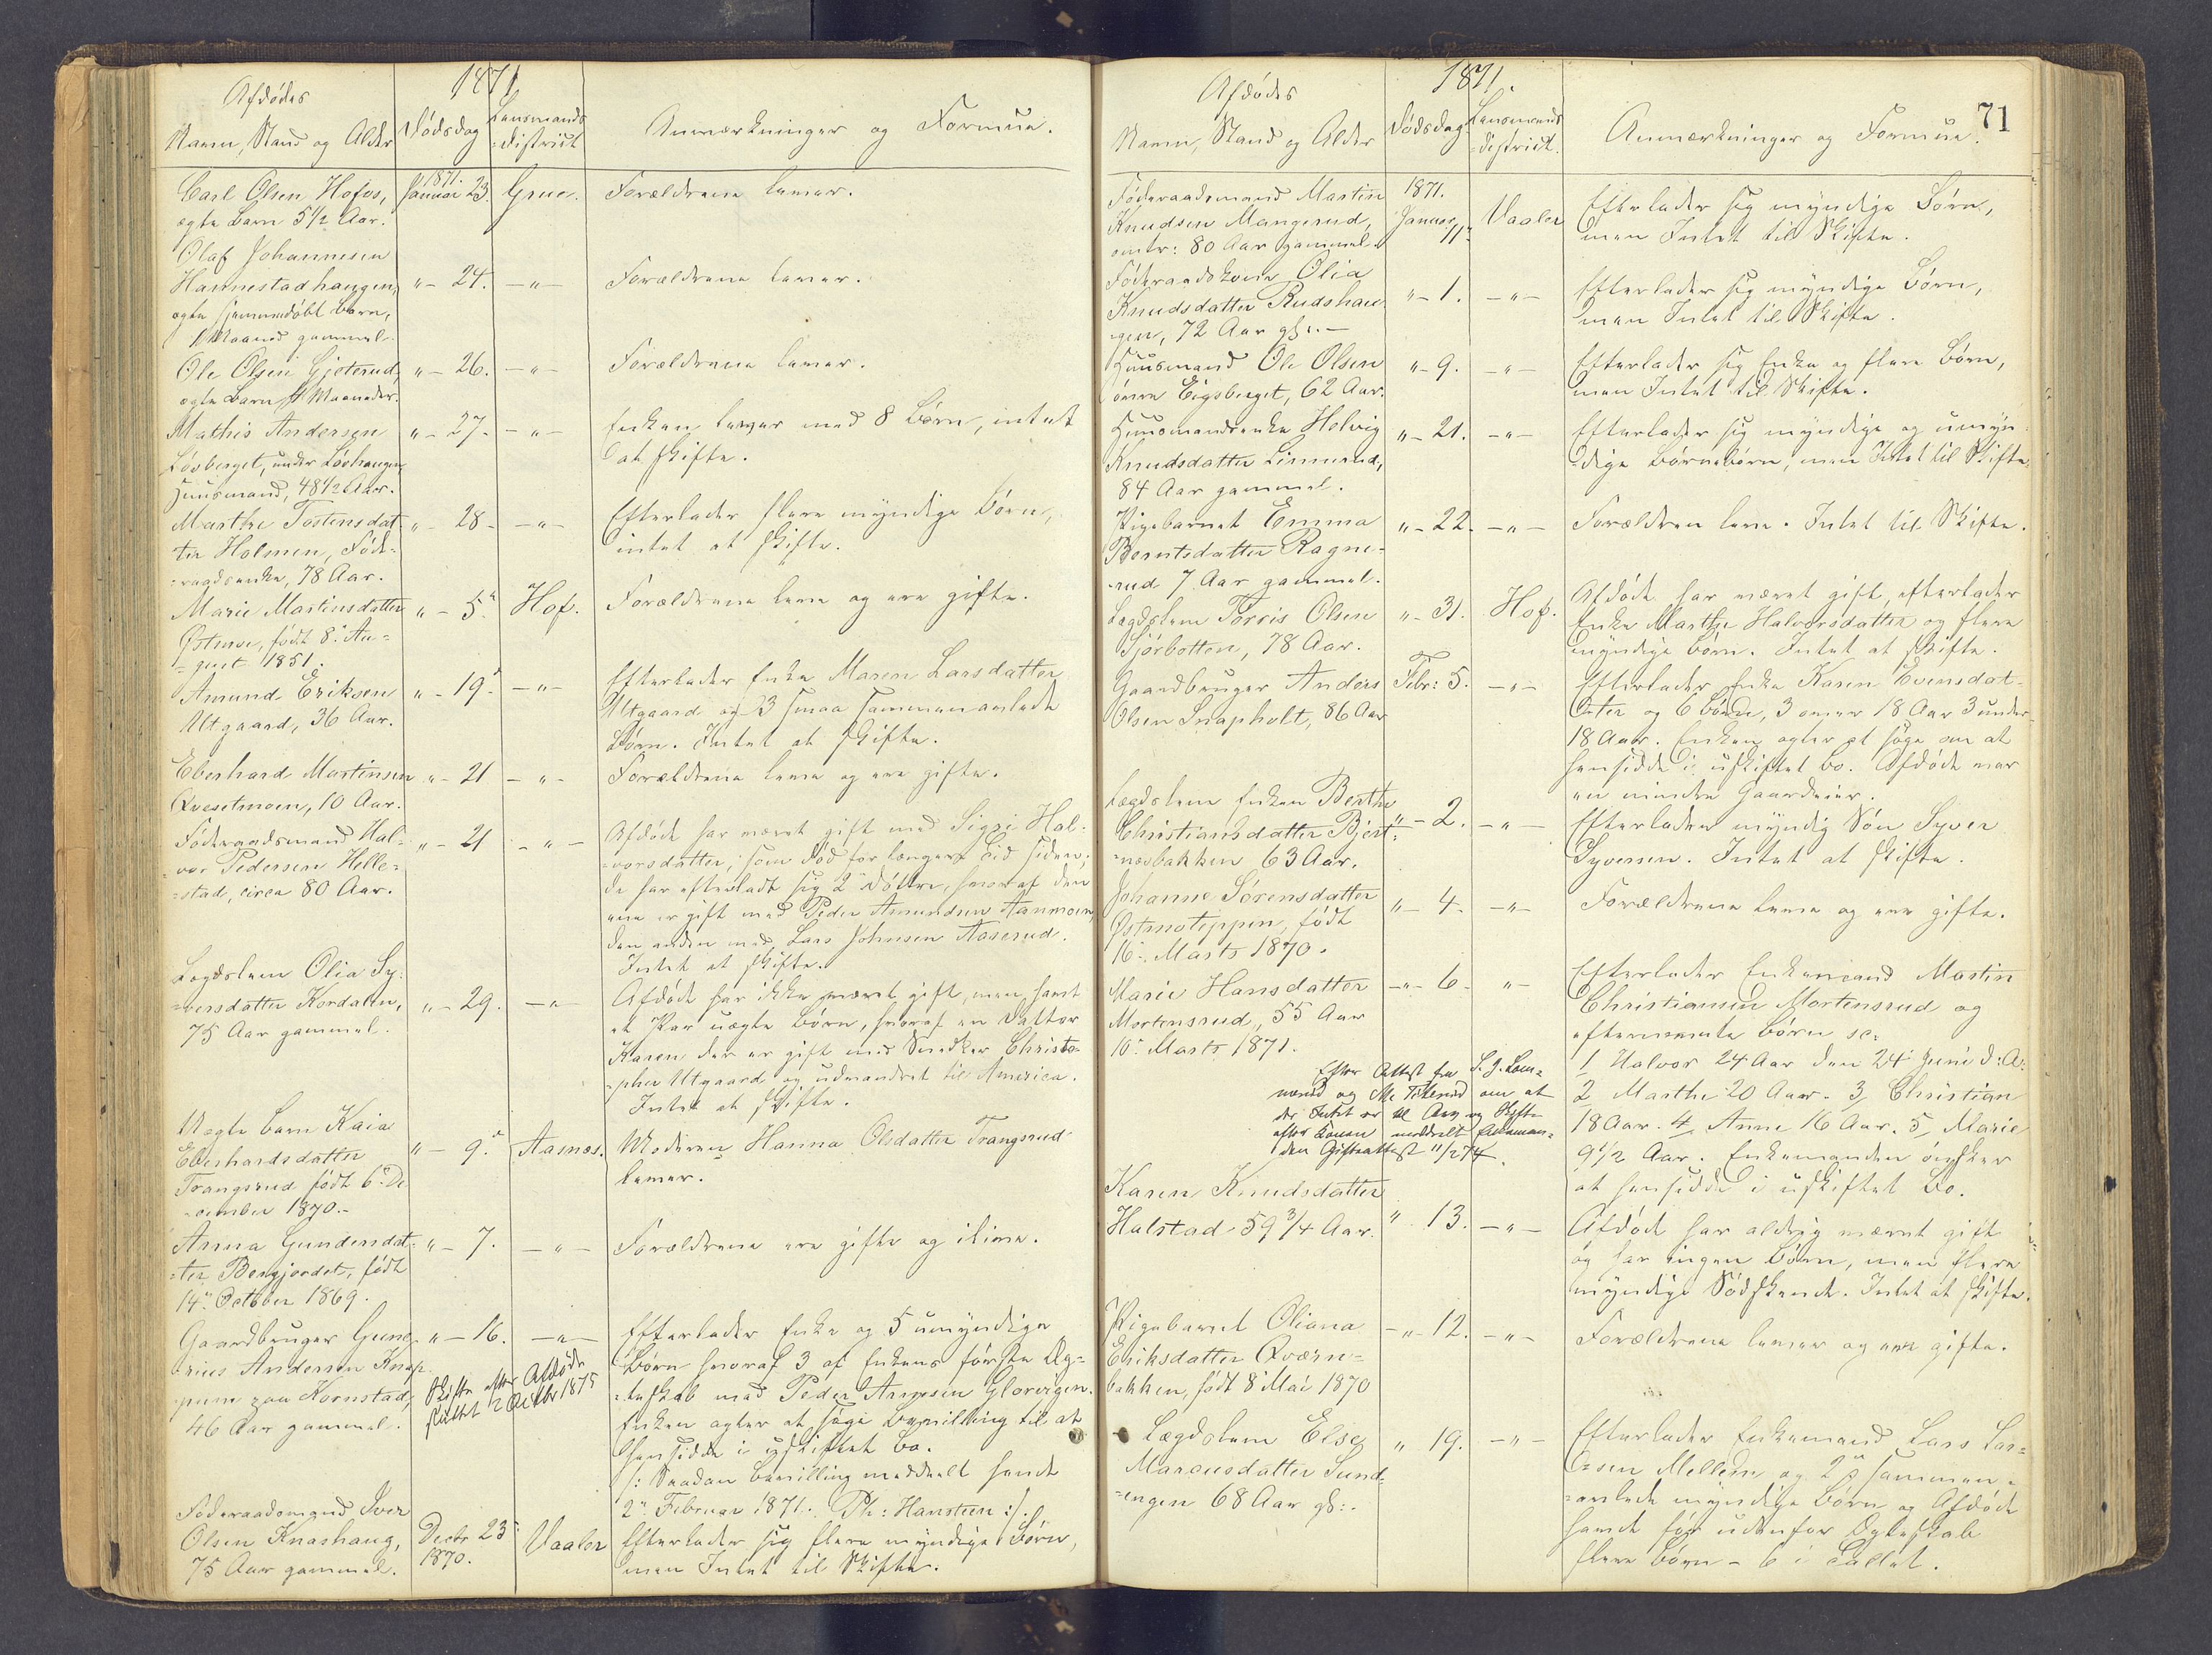 Afdødes
1871
Navn, Stand og Alder
Dødsdag
Lensmands
=district
Anmærkninger og Formue.
Carl Olsen Hofos,
ægte Barn 5 1/2 Aar.
1871.
Januar 23.
Grue.
Forældrene lever.
Olaf Johannesen
Hannestadhaugen,
ægte hjemmedøbt Barn,
1 Maaned gammel.
"- 24.
-"-
Forældrene lever.
Ole Olsen Gjeterud,
ægte Barn 4 Maaneder.
"- 26.
-"-
Forældrene lever.
Mathis Andersen
Løvberget, under Løvhaugen
Huusmand, 48 1/2 Aar.
"- 27.
-"-
Enken lever med 8 Børn, intet
at skifte.
Marthe Tostensdat-
ter Holmen, Føde-
=raadsenke, 78 Aar.
"- 28-
-"-
Efterlader flere myndige Børn,
intet at skifte.
Marie Martinsdatter
Østmoe, født 8de Au=
=gust 1851.
"- 5"
Hof.
Forældrene leve og ere gifte.
Amund Eriksen
Utgaard, 36 Aar.
"- 19"
-"-
Efterlader Enke Maren Larsdatter
Utgaard og 3 smaa sammenavlede
Børn. Intet at skifte.
Eberhard Martinsen
Qvesetmoen, 10 Aar.
"- 21
-"-
Forældrene leve og ere gifte.
Føderaadsmand Hal=
=vor Pedersen Helle=
=stad, circa 80 Aar.
"- 21
-"-
Afdøde har været gift med Sigri Hal=
=vorsdatter, som død for længere Tid siden;
de har efterladt sig 2 Døttre, hvoraf den
ene er gift med Peder Amundsen Aanmoen,
den anden med Lars Johnsen Aaserud.
Intet at skifte.
Lægdslem Olia Sy=
=versdatter Kordalen,
75 Aar gammel.
"- 29.
-"-
Afdøde har ikke været gift, men havt
et Par uægte Børn, hvoraf en Datter
Karen der er gift med Snedker Christo=
=pher Utgaard og udvandret til America.
Intet at skifte.
Uægte Barn Kaia
Eberhardsdatter
Trangsrud født 6te De
=cember 1870.-
"- 9"
Aasnes.
Moderen Hanna Olsdatter Trangsrud
lever.
Anna Gundersdat=
=ter Bergjordet, født
14de October 1869.
"- 7.
-"-
Forældrene ere gifte og ilive.
Gaardbruger Gune=
rius Andersen Knap
pum paa Kornstad,
46 Aar gammel.
"- 16.
-"-
Skifte efter Afdøde
sluttet 1/2 Octbr 1875
Efterlader Enke og 5 umyndige
Børn hvoraf 3 af Enkens første Æg=
=teskab med Peder Arnesen Glorvigen.
Enken agter at søge Bevilling til at
hensidde i uskiftet Bo.
/: Saadan Bevilling meddeelt hende
2den Februar 1871. Th: Hansteen :/
Føderaadsmand Iver
Olsen Knashaug,
75 Aar gammel.
Decbr 23
1870.
Vaaler
Efterlader sig flere myndige Børn,
men Intet til Skifte.
71
Afdødes
1871.
Navn, Stand og Alder
Dødsdag
Lensmands
=district.
Anmærkninger og Formue.
Føderaadsmand Martin
Knudsen Mangerud,
omtr: 80 Aar gammel.
1871.
Januar
11te
Vaaler
Efterlader sig myndige Børn,
men Intet til Skifte.
Føderaadskone Olia
Knudsdatter Rudshau
gen, 72 Aar gl. -
"- 1.
-"-
Efterlader sig myndige Børn,
men Intet til Skifte.
Huusmand Ole Olsen
Eigsberget, 62 Aar.
"- 9.
-"-
Efterlader sig Enke og flere Børn,
men Intet til Skifte.
Huusmandsenke Helvig
Knudsdatter Linnerud,
84 Aar gammel.
"- 21.
-"-
Efterlader sig myndige og umyn
=dige Børnebørn, men Intet til Skifte.
Pigebarnet Emma
Berntsdatter Ragne-
=rud 7 Aar gammel.
"- 22.
-"-
Forældren leve. Intet til Skifte.
Lægdslem Torris Olsen
Sjørbotten, 78 Aar.
"- 31.
Hof.
Afdøde har været gift, efterlader
Enke Marthe Halvorsdatter og flere
myndige Børn. Intet at skifte.
Gaardbruger Anders
Olsen Snapholt, 86 Aar
Febr: 5.
-"-
Efterlader Enke Karen Evensdat-
ter og 6 Børn, 3 over 18 Aar 3 under
18 Aar. Enken agter at søge om at
hensidde i uskiftet Bo. Afdøde var
en mindre Gaardeier.
Lægdslem Enken Berthe
Christiansdatter Bjert=
=næsbakken 63 Aar.
"- 2.
-"-
Efterlader myndig Søn Syver
Syversen. Intet at skifte.
Johanne Sørensdatter
Østmoteppen, født
16de Marts 1870.
"- 4.
-"-
Forældrene leve og ere gifte.
Marie Hansdatter
Mortensrud, 55 Aar
10de Marts 1871.
-"- 6-
"-
Efterlader Enkemand Martin
Christiansen Mortensrud og
efternævnte Børn sc:
1 Halvor 24 Aar den 24 Juni d: A:
2 Marthe 20 Aar. 3, Christian
18 Aar. 4, Anne 16 Aar. 5, Marie
9 1/2 Aar. Enkemanden ønsker
at hensidde i uskiftet Bo.
Efter Attest fra S. J. Lom=
nærud og Ole Titterud om at
der Intet er til Arv og Skifte
efter Konen meddelt Enkeman=
den Gifteattest 11/2 74.
Karen Knudsdatter
Halstad 59 3/4 Aar.
" 13.
-"-
Afdøde har aldrig været gift
og har ingen Børn, men flere
myndige Sødskende. Intet at skifte.
Pigebarnet Oliana
Eriksdatter Qværn=
bakken, født 8 Mai 1870
-"- 12.
-"-
Forældrene lever og ere gifte.
Lægdslem Else
Marcusdatter Sund=
=engen 68 Aar gl:.
" 19.
-"-
Efterlader Enkemand Lars Lar=
sen Mellem og 2de sammen=
=avlede myndige Børn og Afdøde
havde før udenfor Ægteskab
flere Børn - 6 i Tallet.